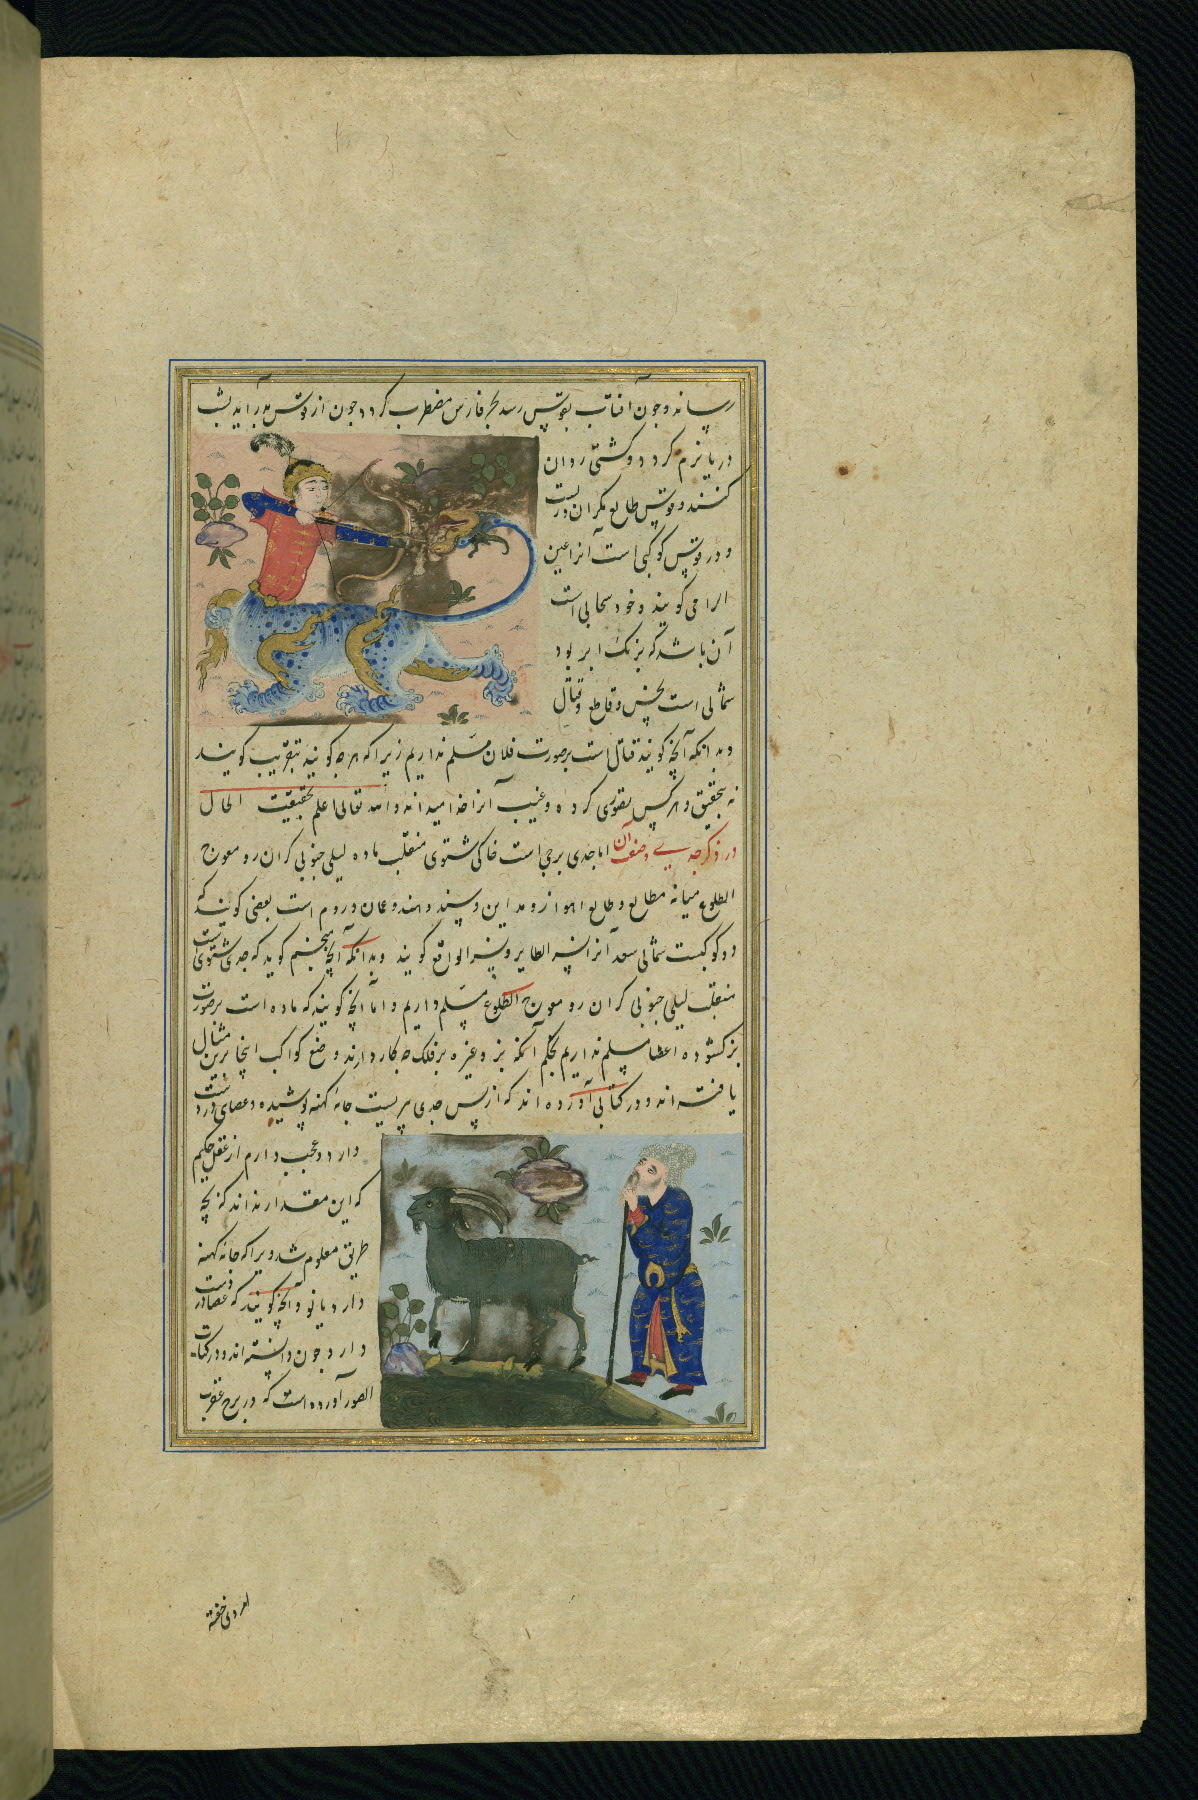 رسانه و جون آفتاب بقوس رسد بحر فارس مضطرب کردد جون از قوس بدر آید بشب
دریا نرم کردد و کشتی روان
کنند و قوس طالع مکران
و در قوس کوکبی است آنرا عین
الرامی کویند و خود سحابی است
آن باشد که بزنک ابر بود
شمالی است نحس و قاطع و قتال
و بدانکه آنچه کویند قتال است برصورت فلان مسلم نداریم زیرا که هرجه کویند بتقریب کویند
نه بتحقیق و هرکس تصوری کرده و غیب آنرا خدا میداند والله تعالی اعلم بحقیقت الحال
در ذکر جدی وصف آن اما جدی برجی است خاکی شتوی منقلب ماده لیلی جنوبی کران رو معوج
الطلوع میانه مطالع و طالع اهواز و مداین و سند و هند و عمان و روم است بعضی کویند که
دو کوکبست شمالی سعد آنرا نسر الطایر و نسر الواقع کویند و بدانکه آنچه منجم کوید که جدی شتوی است
منقلب لیلی جنوبی کران رو معوج الطلوع مسلم داریم و اما آنچه کویند که ماده است برصورت
بز کشوده اعضا مسلم نداریم بحکم آنکه بز و غیره بر فلک جه کار دارند و وضع کواکب اینجا برین مثال
یافته اند و در کتابی آورده اند که از پس جدی پریست جامه کهنه پوشیده و عصای در دست
دارد و عجب دارم از عقل حکیم
که این مقدار نداند که بچه
طریق معلوم شد ویرا که جامه کهنه
دارد یا نو و آنچه کویند که عصا در دست
دارد جون دانسته اند و در کتاب
الصور آورده است که در برج عقرب
امردی خفته